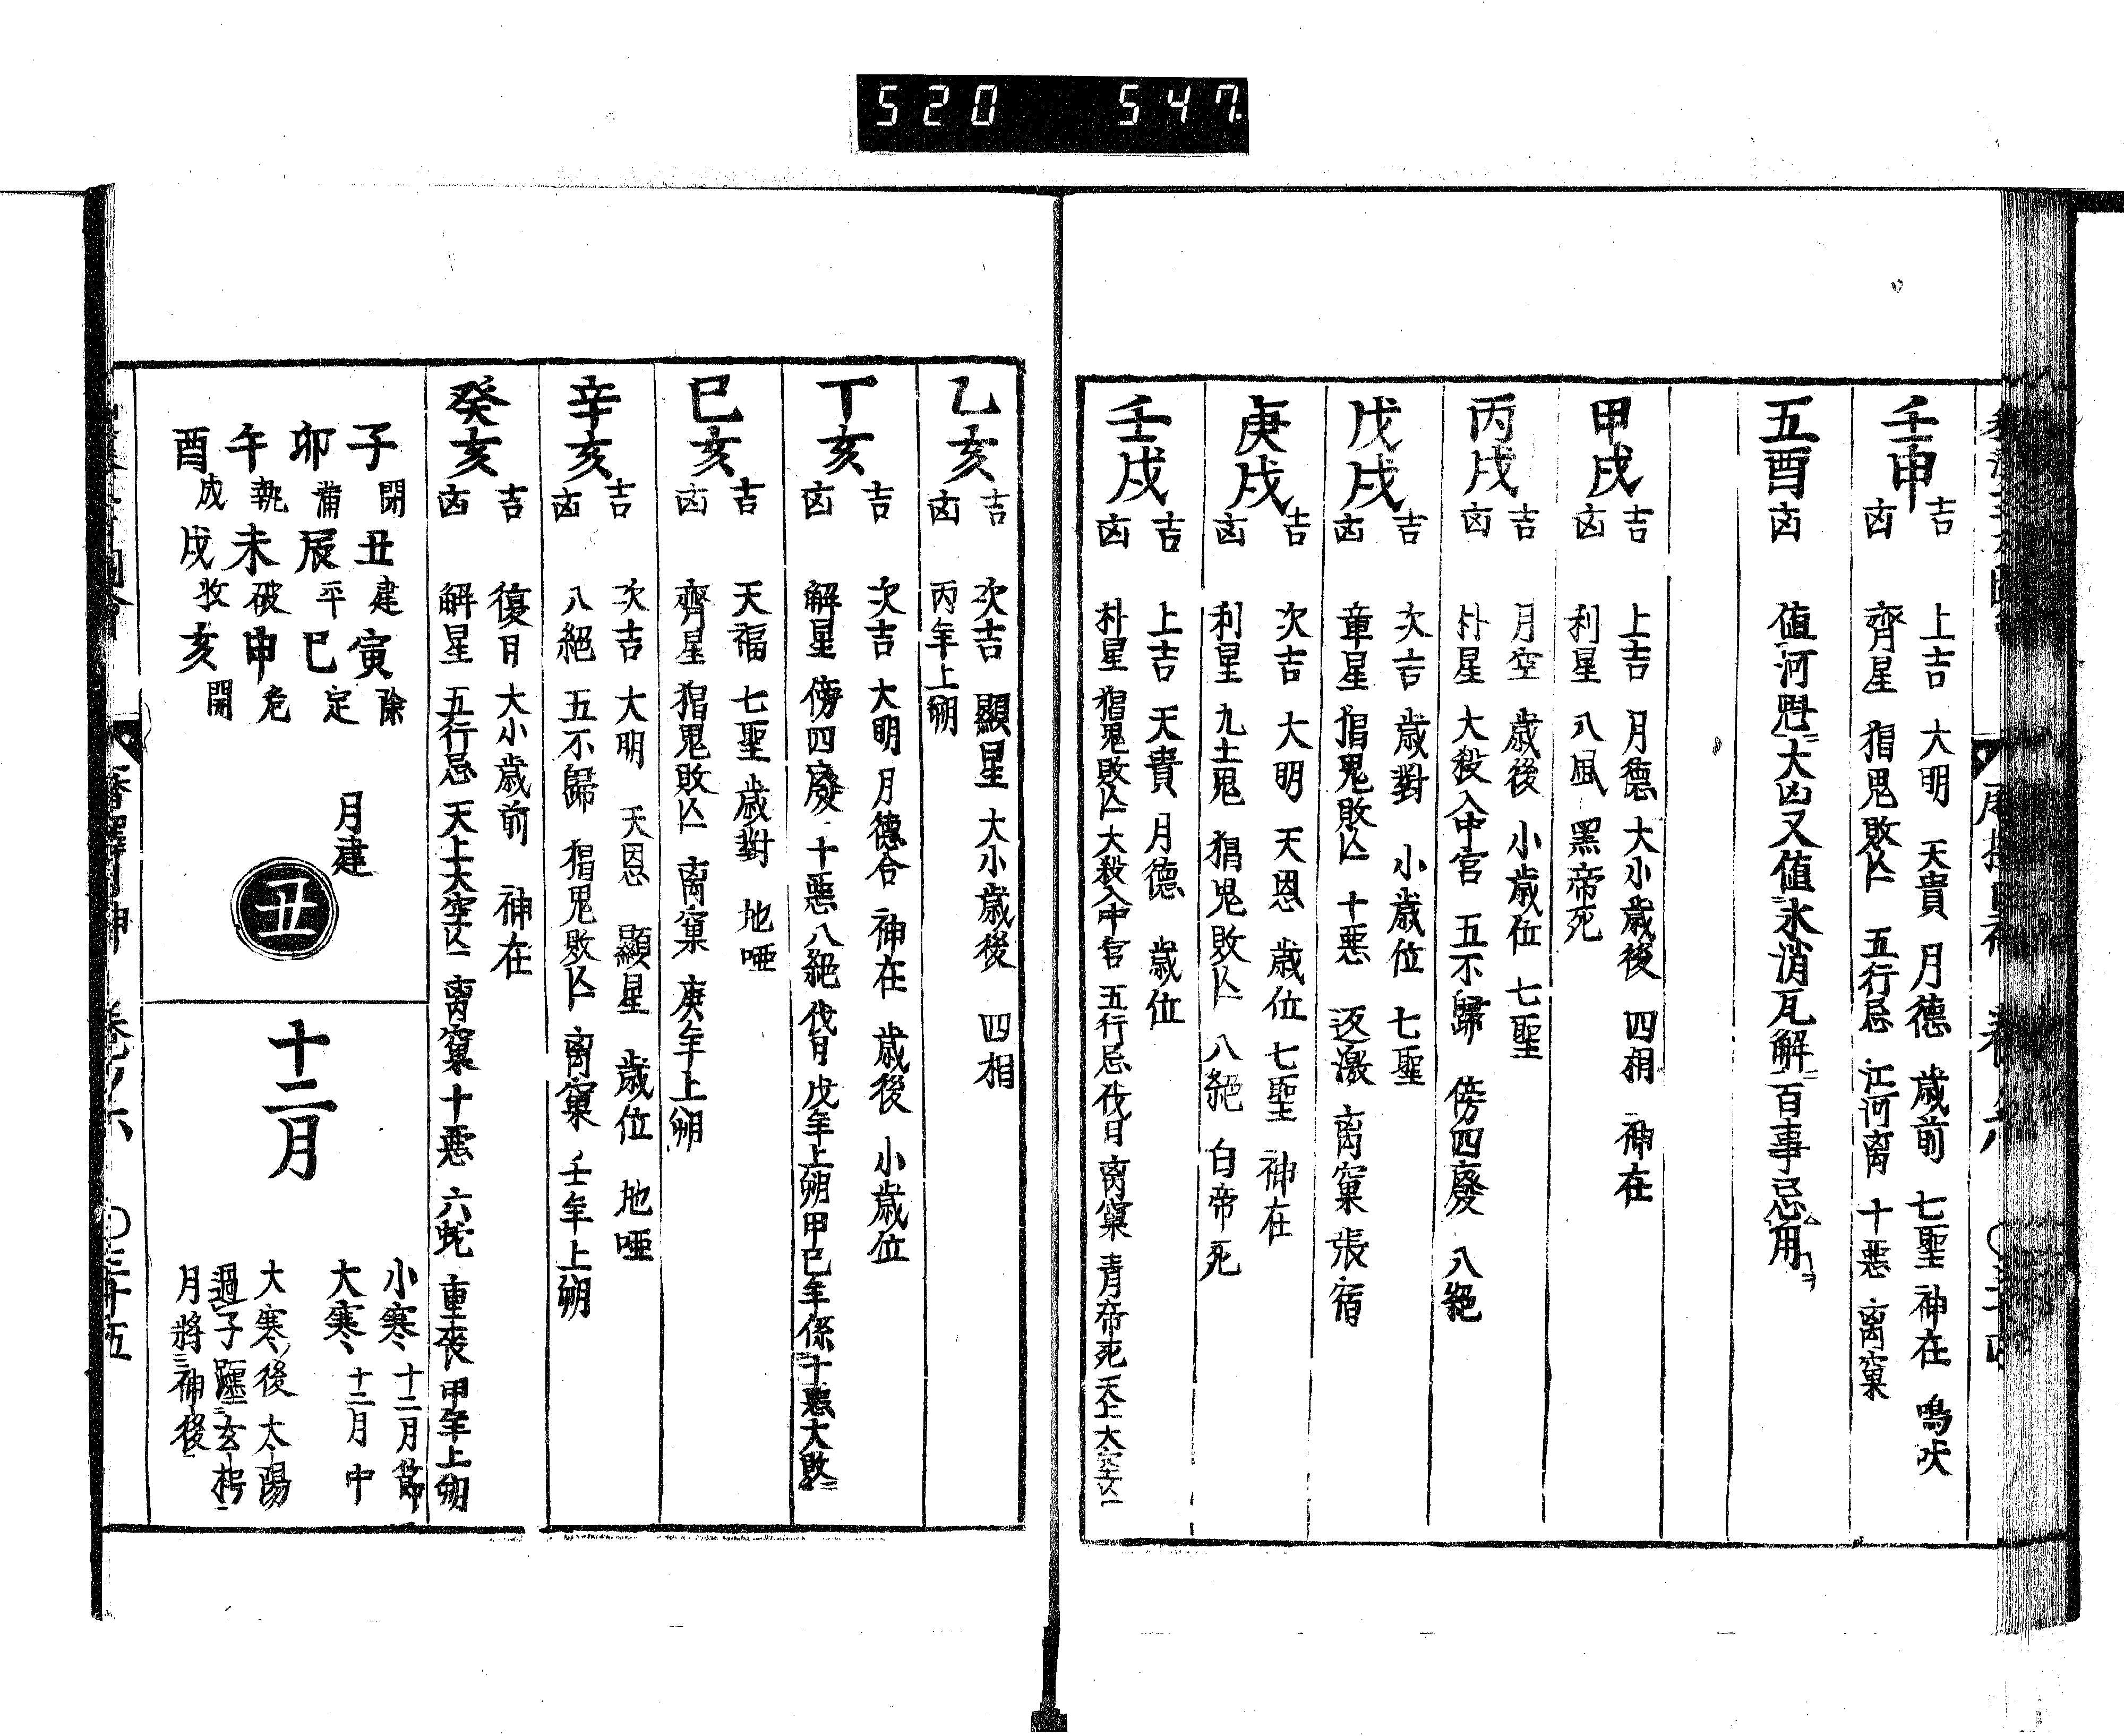 520 547
壬申
吉 上吉 大明 天貴 月德 歳前 七聖 神在 鳴吠
凶 齊星 猖鬼敗亡 五行忌 江河离 十惡 离窠
五酉 凶 值河魁大凶又值氷消瓦解百事忌用
甲戌
吉 上吉 月德 大小歳後 四相 神在
凶 利星 八風 黑帝死
丙戌
吉 月空 歳後 小歳位 七聖
凶 朴星 大殺入中宮 五不歸 傍四廢 八絕
戊戌
吉 次吉 歳對 小歳位 七聖
凶 章星 猖鬼敗亡 十惡 返激 离窠 張宿
庚戌
吉 次吉 大明 天恩 歳位 七聖 神在
凶 利星 九土鬼 猖鬼敗亡 八絕 白帝死
壬戌
吉 上吉 天貴 月德 歳位
凶 朴星 猖鬼敗亡 大殺入中宮 五行忌 伐日 离窠 青帝死 天上大空亡
乙亥
吉 次吉 顯星 大小歳後 四相
凶 丙年上朔
丁亥
吉 次吉 大明 月德合 神在 歳後 小歳位
凶 解星 傍四廢 十惡 八絕 伐日 戊年上朔 甲巳年係十惡大敗
巳亥
吉 天福 七聖 歳對 地啞
凶 齊星 猖鬼敗亡 离窠 庚年上朔
辛亥
吉 次吉 大明 天恩 顯星 歳位 地啞
凶 八絕 五不歸 猖鬼敗亡 离窠 壬年上朔
癸亥
吉 復日 大小歳前 神在
凶 解星 五行忌 天上大空亡 离窠 十惡 六蛇 重喪 甲年上朔
子閉 丑建 寅除
卯滿 辰平 巳定
午執 未破 申危
酉成 戌收 亥開
月建
丑
十二月
小寒 十二月節
大寒 十二月中
大寒後太陽
過子躔玄枵
月將神後